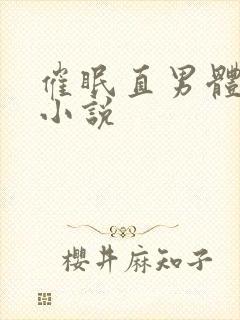 催眠直男體
小說
櫻井麻知子